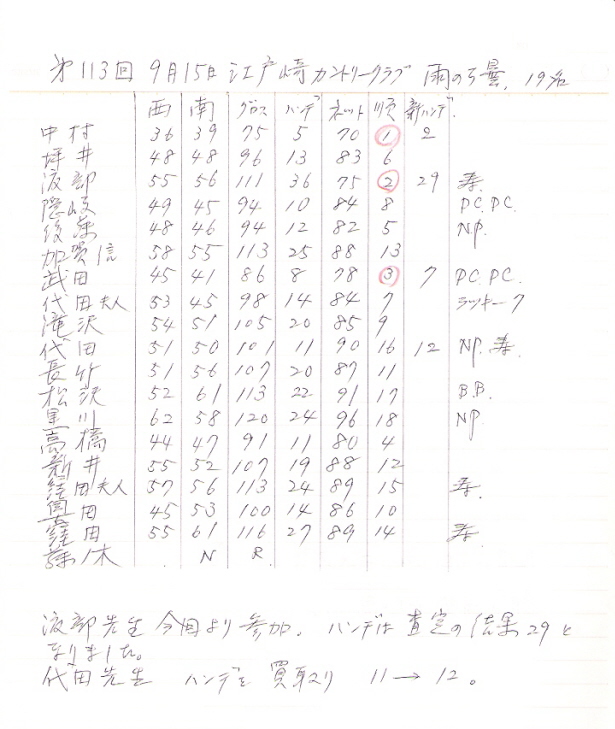 第113回 9月15日 江戸崎カントリークラブ 雨のち曇、19名
西 南 グロス ハンデ ネット 順 新ハンデ
中村 36 39 75 5 70 1 2
坪井 48 48 96 13 83 6
渡部 55 56 111 36 75 2 29 寿.
隠岐 49 45 94 10 84 8 P.C. P.C.
後案 48 46 94 12 82 5 N.P.
加賀信 58 55 113 25 88 13
武田 45 41 86 8 78 3 7 P.C. P.C.
代田夫人 53 45 98 14 84 7 ラッキー7
滝沢 54 51 105 20 85 9
代田 51 50 101 11 90 16 12 N.P. 寿.
長竹 51 56 107 20 87 11
松沢 52 61 113 22 91 17 B.B.
黒川 62 58 120 24 96 18 N.P.
高橋 44 47 91 11 80 4
新井 55 52 107 19 88 12
窪田夫人 57 56 113 24 89 15 寿.
田 45 53 100 14 86 10
窪田 55 61 116 27 89 14 寿.
木 N R.
渡部先生 今回より参加。ハンデは査定の結果29と
なりました。
代田先生 ハンデを買取り 11→12。